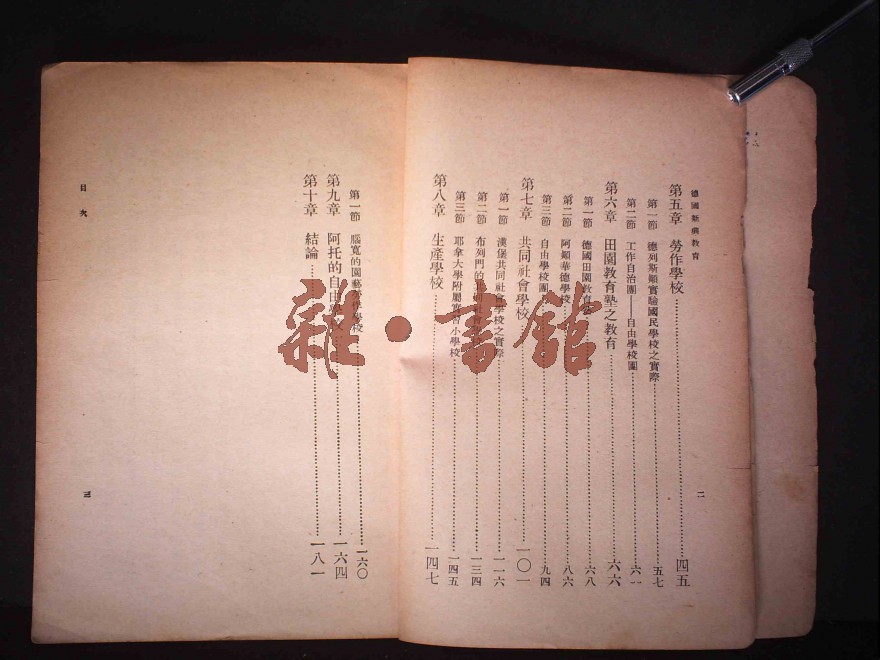 德國新興教育
第五章　勞作學校……四五
第一節　德列斯頓實驗國民學校之實際……五七
第二節　工作自治團——自由學校團……六一
第六章　田園教育塾之教育……六六
第一節　德國田園教育……六八
第二節　阿顯華德學校……八六
第三節　自由學校團……九四
第七章　共同社會學校……一〇一
第一節　漢堡共同社會學校之實際……一一六
第二節　布列門的共同社會……一三四
第三節　耶拿大學附屬實習小學校……一四五
第八章　生產學校……一四七
二
第一節　腦寬的園藝勞作學校……一六〇
第九章　阿托的自由學校……一六四
第十章　結論……一八一
目次
三
雜・書館